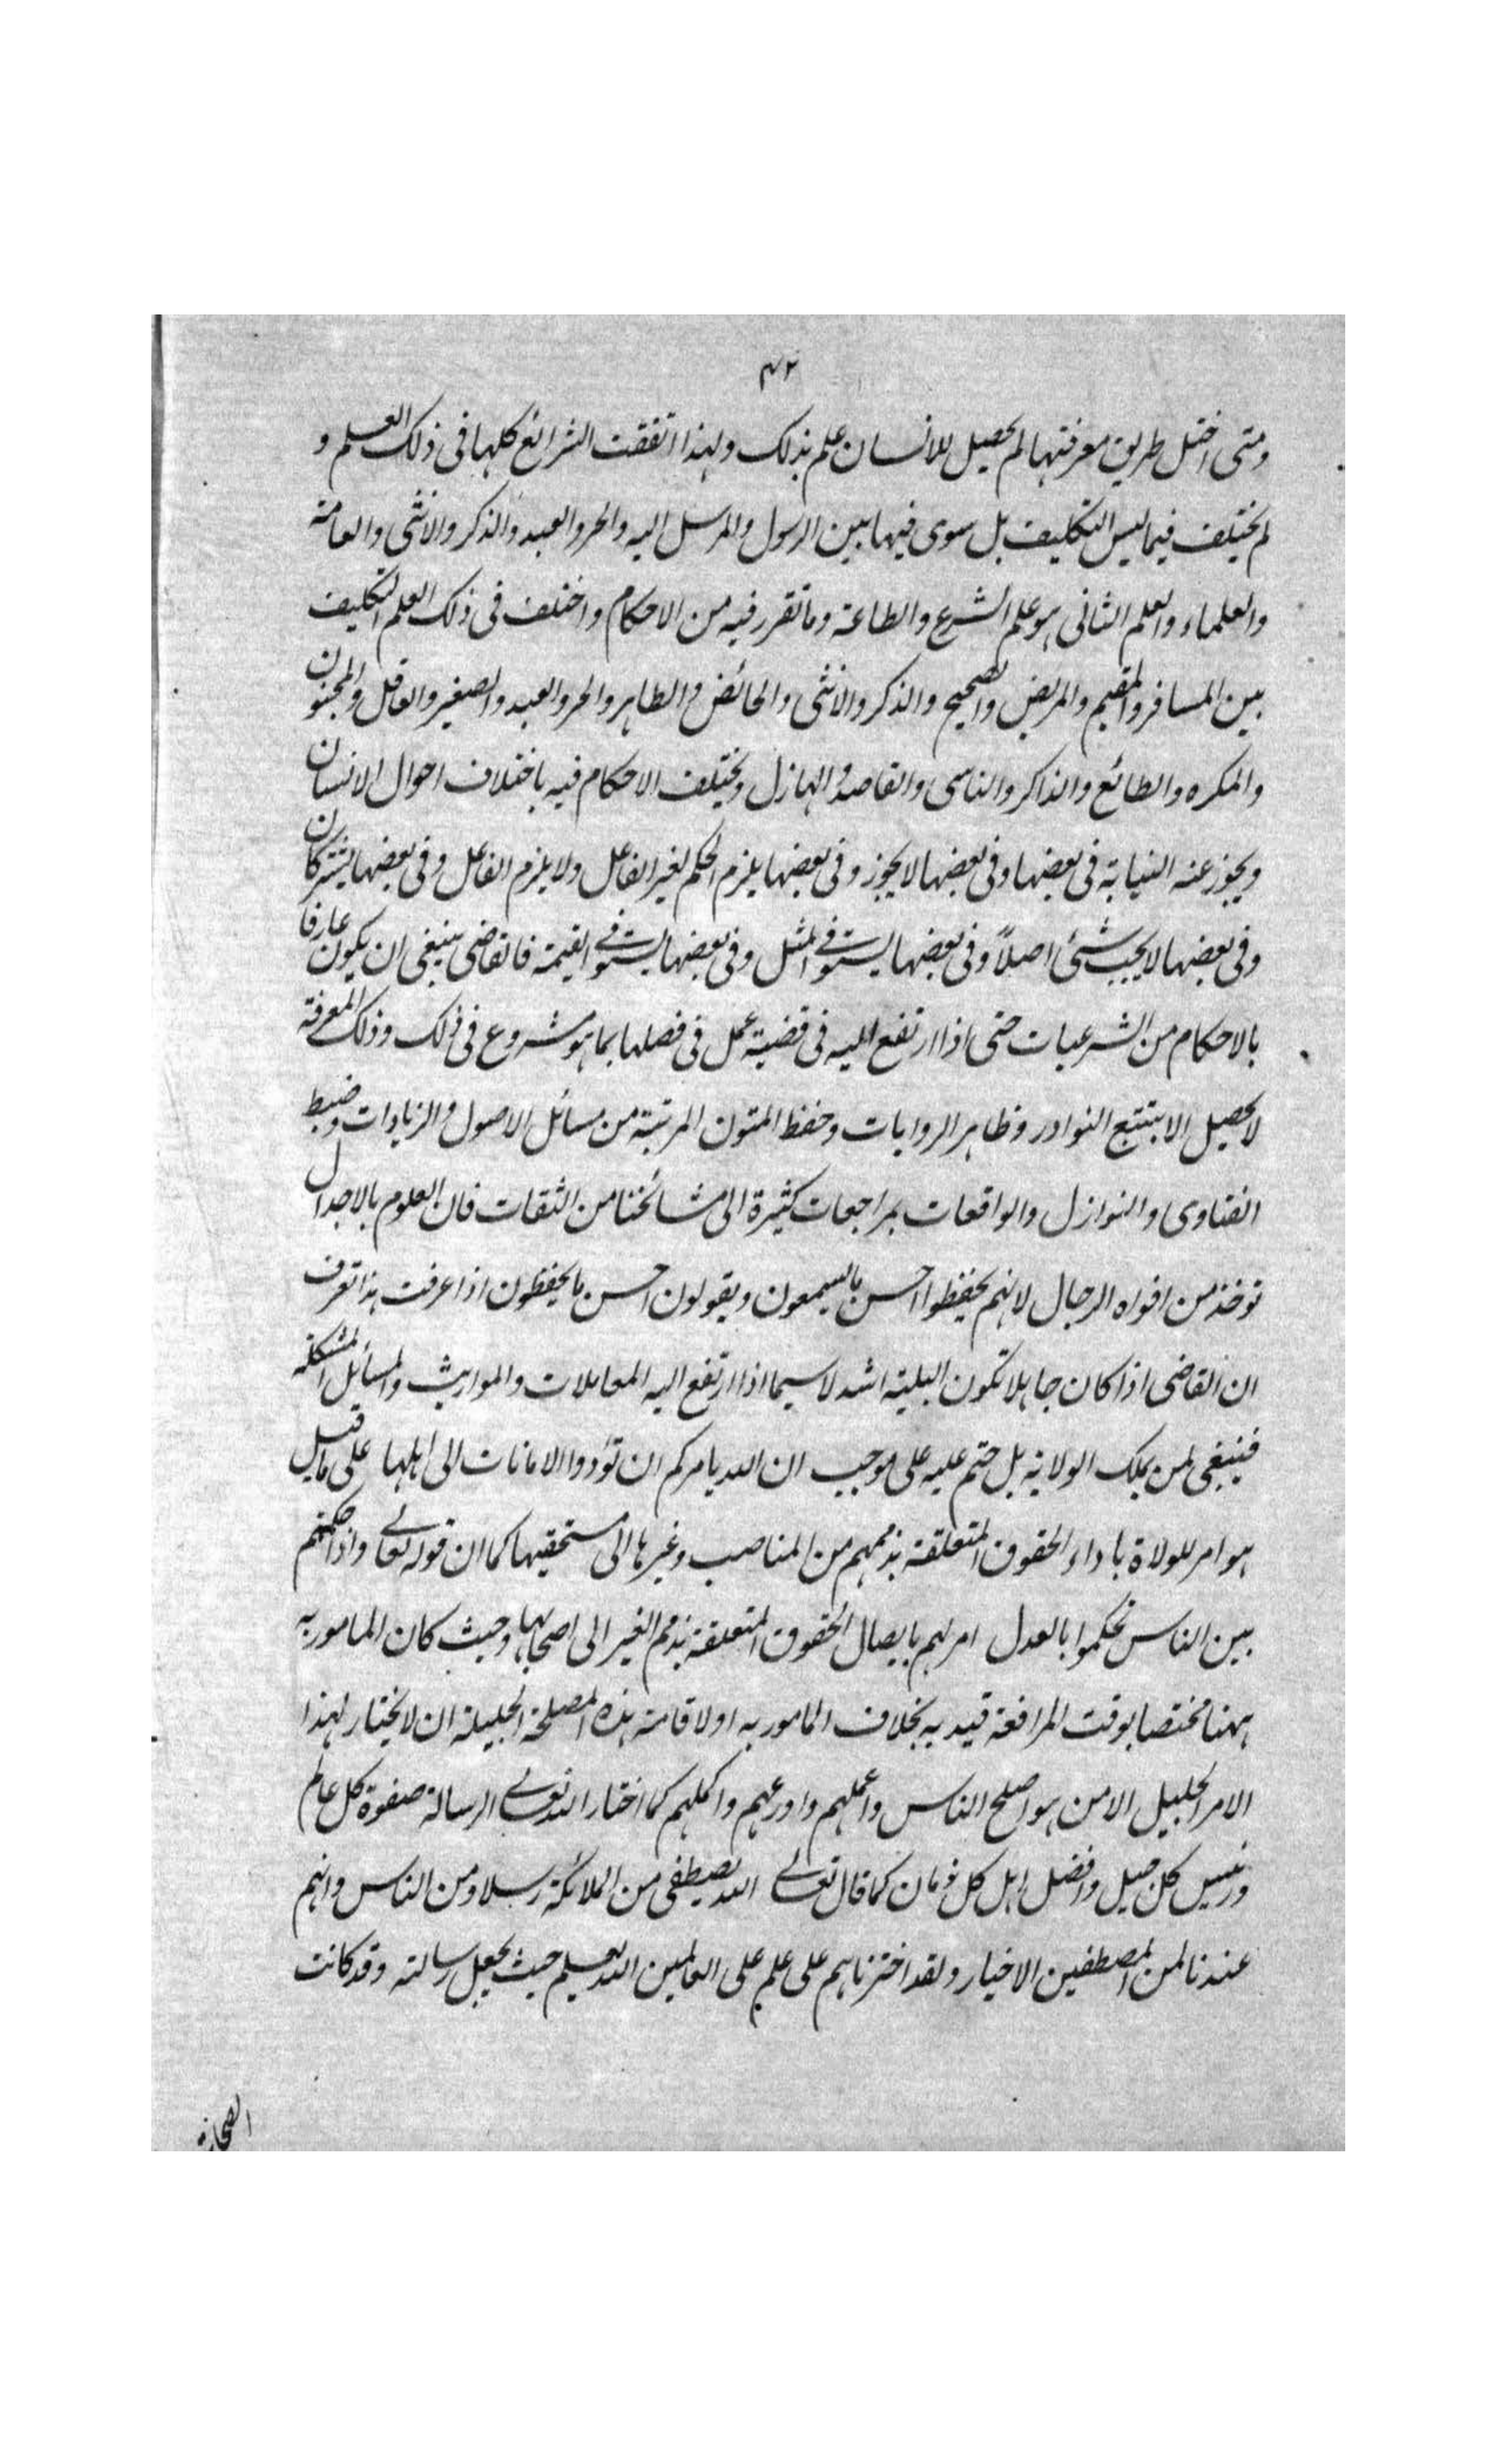 ٤٢
ومتى اختل طريق معرفتها لم يحصل للانسان علم بذلك ولهذا اتفقت الشرائع كلها فى ذلك العلم و
لم يختلف فيما ليس التكليف بل سوى فيها بين الرسول والمرسل اليه والحر والعبد والذكر والانثى والعامة
والعلماء والعلم الثانى هو علم الشرع والطاعة وما تقرر فيه من الاحكام واختلف فى ذلك العلم التكليف
بين المسافر والمقيم والمريض والصحيح والذكر والانثى والحائض والطاهر والحر والعبد والصغير والعاقل والمجنون
والمكره والطائع والذاكر والناسى والقاصد والهازل ويختلف الاحكام فيه باختلاف احوال الانسان
ويجوز عنه النيابة فى بعضها وفى بعضها لا يجوز وفى بعضها يلزم الحكم لغير الفاعل ولا يلزم الفاعل وفى بعضها يشتركان
وفى بعضها لا يجب شئ اصلاً وفى بعضها يستوفى المثل وفى بعضها يستوفى القيمة فالقاضى ينبغى ان يكون عارفا
بالاحكام من الشرعيات حتى اذا ارتفع اليه فى قضية عمل فى فصلها بما هو مشروع فى ذلك وذلك المعرفة
لا يحصل الا بتتبع النوادر وظاهر الروايات وحفظ المتون المرتبة من مسائل الاصول والزيادات وضبط
الفتاوى والنوازل والواقعات بمراجعات كثيرة الى مشائخنا من الثقات فان العلوم بالاجدال
توخذ من افواه الرجال لانهم يحفظوا احسن ما يسمعون ويقولون احسن ما يحفظون اذا عرفت هذا تعرف
ان القاضى اذا كان جاهلا تكون البلية اشد لا سيما اذا ارتفع اليه المعاملات والمواريث والمسائل المشكلة
فينبغى لمن يملك الولاية بل حتم عليه على موجب ان الله يامركم ان تؤدوا الامانات الى اهلها على ما قيل
هو امر للولاة باداء الحقوق المتعلقة بذممهم من المناصب وغيرها الى مستحقيها كما ان قوله تعالى واذا حكمتم
بين الناس تحكموا بالعدل امر لهم بايصال الحقوق المتعلقة بذمم الغير الى اصحابها وحيث كان المامور به
ههنا مختصا بوقت المرافعة قيد به بخلاف المامور به اولا قامة هذه المصلحة الجليلة ان لا يختار لهذا
الامر الجليل الا من هو اصلح الناس واعملهم واورعهم واكملهم كما اختار الله تعالى الرسالة صفوة كل عالم
ورئيس كل جيل وافضل اهل كل زمان كما قال تعالى الله يصطفى من الملائكة رسلا ومن الناس وانهم
عندنا لمن المصطفين الاخيار ولقد اخترناهم على علم على العالمين الله يعلم حيث يجعل رسالته وقد كانت
الصحابة